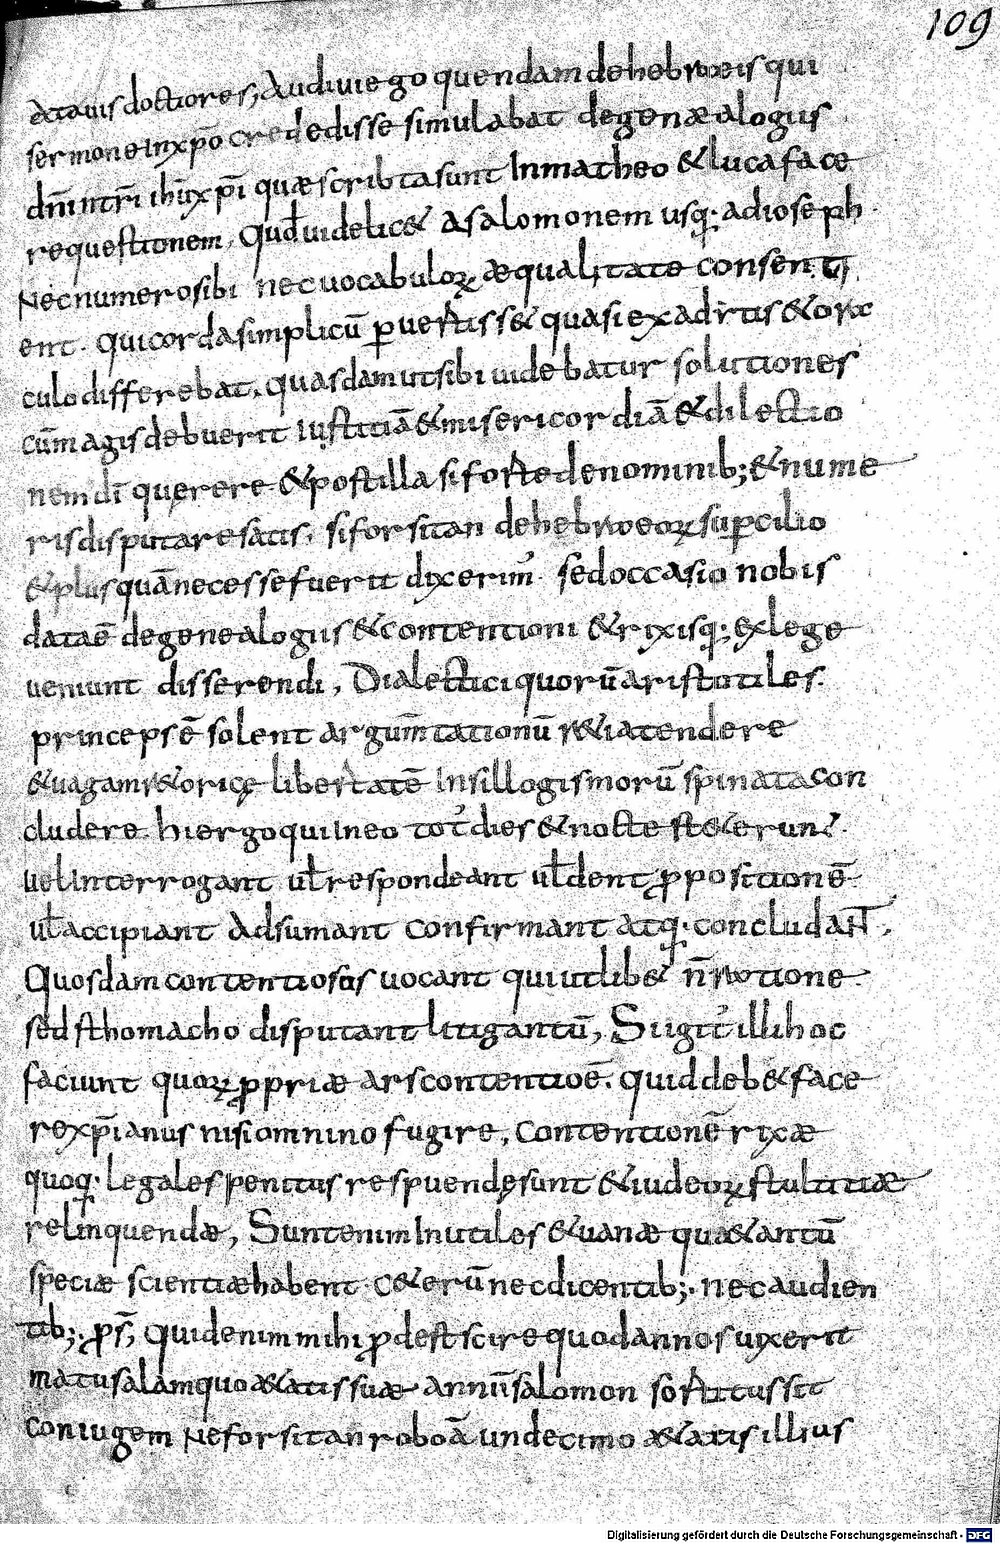 109
atauis doctiores, Audiui ego quendam de hebraeis qui
sermone in xp̄o credidisse simulabat de genaealogiis
dn̄i nr̄i ihū xp̄i quae scribta sunt In matheo & luca face
re questionem, Qud̄ uidelic& a salomonem usq; ad ioseph
Nec numero sibi nec uocabuloꝝ aequalitate consenti
ent. qui corda simplicū ꝑuertiss& quasi ex aditis & ora
culo differebat, quasdam ut sibi uidebatur solutiones
cum̄ agis debuerit iustitiā & misericordiā & dilectio
nem dī querere & post illa si forte de nominib; & nume
ris disputare satis, si forsitan de hebraeoꝝ suꝑcilio
& plus quā necesse fuerit dixerim̄. sed occasio nobis
data ē de genealogiis & contentioni & rixisq; ex lege
ueniunt disserendi, Dialectici quorū aristotiles
princeps ē solent argum̄tationū r&ia tendere
& uagam r&oricę libertatē In sillogismorū spinata con
cludere. hi ergo qui In eo tot̄ dies & nocte st&erunt.
uel Interrogant ul̄ respondeant ul̄ dent ꝓpositionē
ul̄ accipiant Adsumant confirmant atq; concludant,
Quosdam contentiosos uocant qui ut lib& n̄ ratione
sed sthomacho disputant litigantū, Si igit̄ illi hoc
faciunt quoꝝ ꝓpriae ars contentioē. quid deb& face
re xp̄ianus nisi omnino fugire, Contentionē rixae
quoq; legales penitus respuendę sunt & iudeoꝝ stultitiae
relinquendae, Sunt enim Inutiles & uanae quae tantū
speciae scientiae habent c&erū nec dicentib; nec audien
tib; ꝓs̄, Quid enim mihi ꝓdest scire quod annos uixerit
matusalam quo a&atis suae annū salomon sortitus sit
coniugem Ne forsitan roboā undecimo a&atis illius